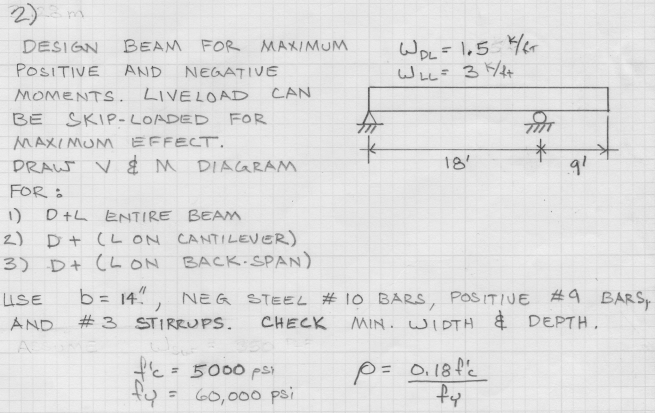 2)
DESIGN BEAM FOR MAXIMUM
POSITIVE AND NEGATIVE
MOMENTS. LIVELOAD CAN
BE SKIP-LOADED FOR
MAXIMUM EFFECT.
DRAW V & M DIAGRAM
FOR:
1) D+L ENTIRE BEAM
2) D + (L ON CANTILEVER)
3) D+ (L ON BACK-SPAN)
W_DL = 1.5 K/ft
W_LL = 3 K/ft
18' 9'
USE b = 14", NEG STEEL #10 BARS, POSITIVE #9 BARS,
AND #3 STIRRUPS. CHECK MIN. WIDTH & DEPTH.
f'c = 5000 psi
fy = 60,000 psi
ρ = 0.18f'c / fy